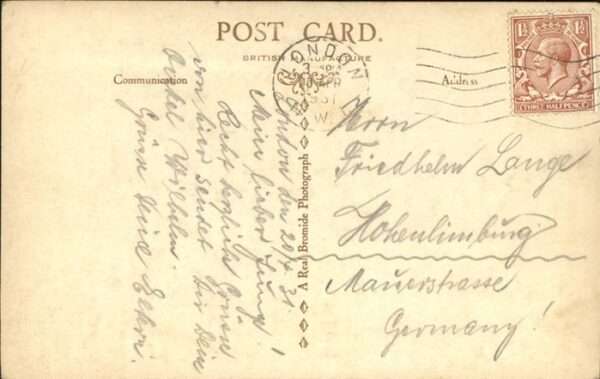 POST CARD.
BRITISH MANUFACTURE
Communication
Address
LONDON
1931
W
1½ 1½
THREE HALF PENCE
A Real Bromide Photograph
London den 20.4.31.
Mein lieber Junge!
Recht herzliche Grüße
von hier sendet Dir Dein
Onkel Wilhelm.
Grüße Deine Eltern.
Herrn
Friedhelm Lange
Hohenlimburg
Mauerstrasse
Germany!